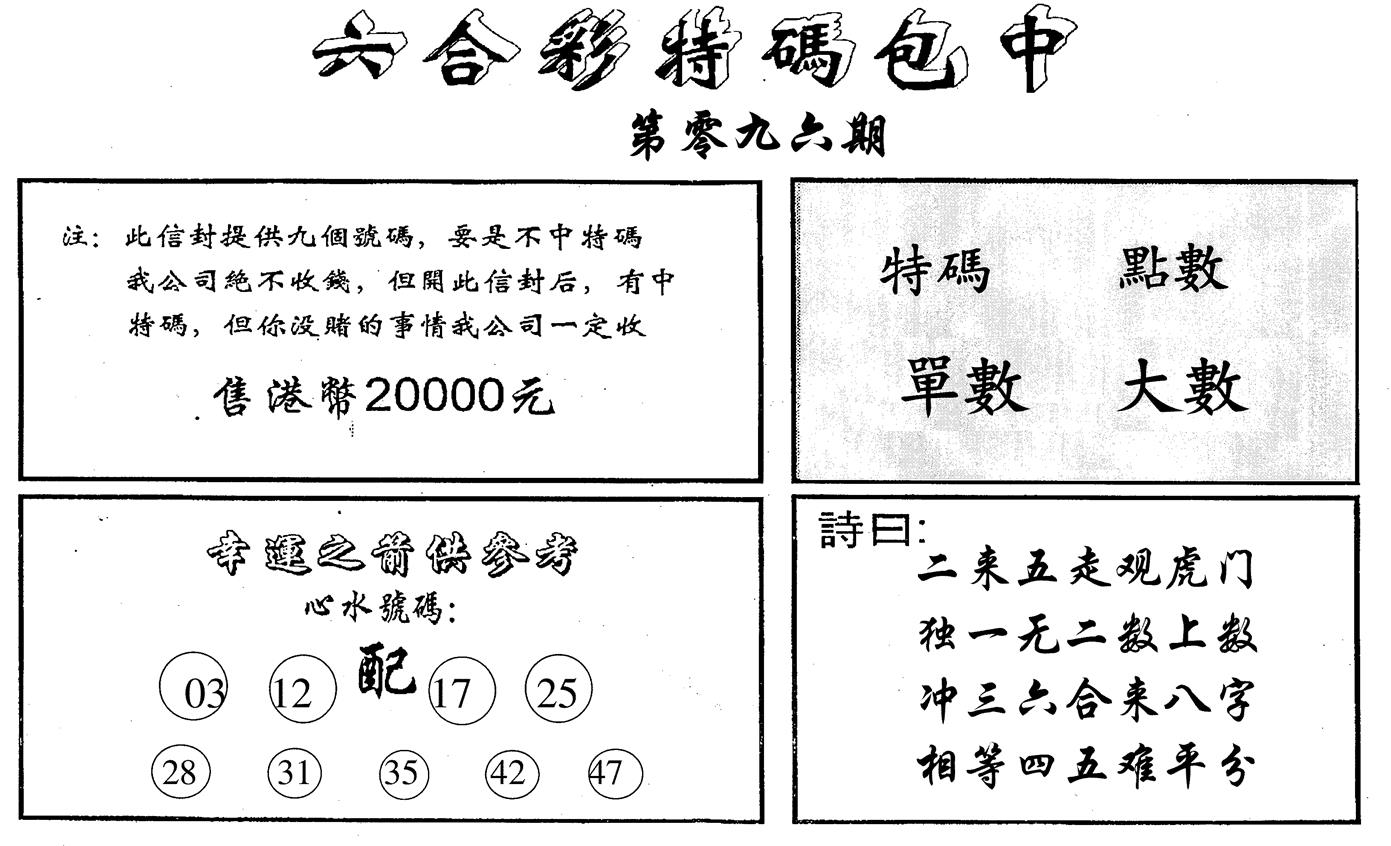 六合彩特碼包中
第零九六期
注：此信封提供九個號碼，要是不中特碼
我公司絶不收錢，但開此信封后，有中
特碼，但你没賭的事情我公司一定收
售港幣20000元
特碼 點數
單數 大數
幸運之箭供參考
心水號碼：
03 12 配 17 25
28 31 35 42 47
詩曰：
二来五走观虎门
独一无二数上数
冲三六合来八字
相等四五难平分